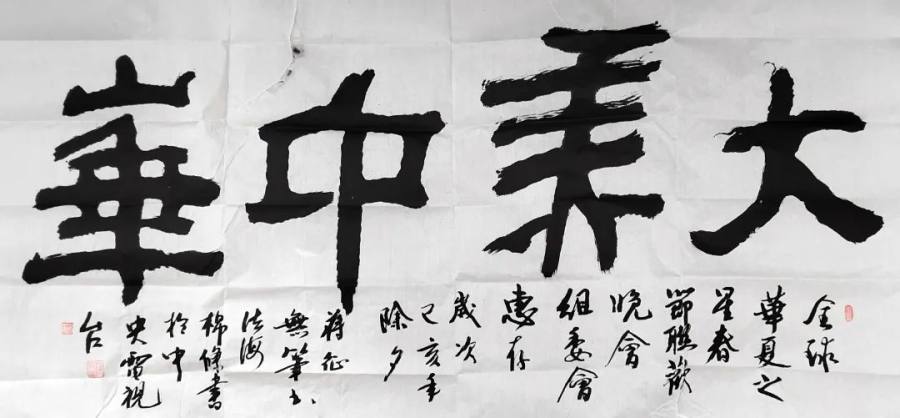 大美中華
全球
華夏之
星春
節聯歡
晚會
組委會
惠存
歲次
己亥年
除夕
蔣征
無筆书
法海
棉條書
於中
央電視
台